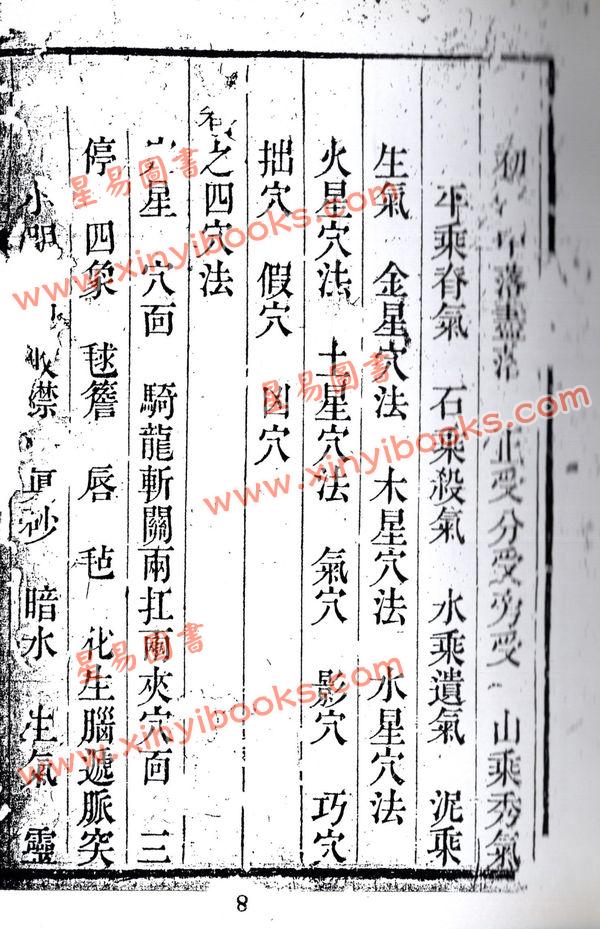 初 中落盡落 正受分受旁受 山乘秀氣
平乘脊氣 石乘殺氣 水乘遺氣 泥乘
生氣 金星穴法 木星穴法 水星穴法
火星穴法 土星穴法 氣穴 影穴 巧穴
拙穴 假穴 凶穴
之四穴法
星 穴面 騎龍斬關兩扛兩夾穴面 三
停 四象 毬簷 唇 毡 化生腦遞脈突
小明 襟 真砂 暗水 生氣 靈
8
星易圖書
www.xinyibooks.com
星易圖書
www.xinyibooks.com
星易圖書
www.xinyibooks.com
星易圖書
www.xinyibooks.com